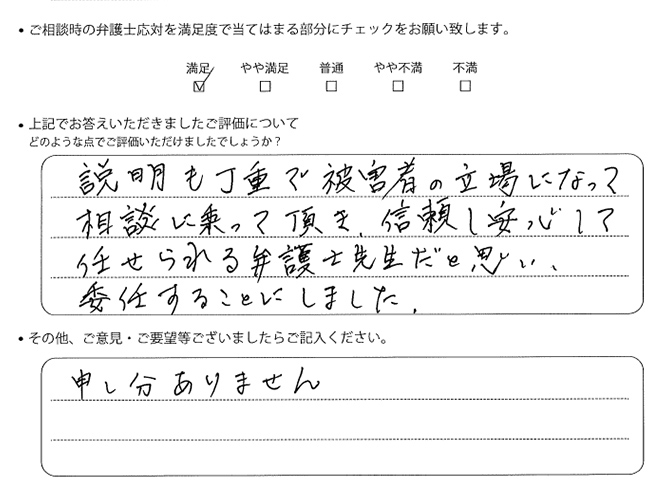 • ご相談時の弁護士応対を満足度で当てはまる部分にチェックをお願い致します。
満足 やや満足 普通 やや不満 不満
☑ □ □ □ □
• 上記でお答えいただきましたご評価について
どのような点でご評価いただけましたでしょうか？
説明も丁重で被害者の立場になって
相談に乗って頂き、信頼し安心して
任せられる弁護士先生だと思い、
委任することにしました。
• その他、ご意見・ご要望等ございましたらご記入ください。
申し分ありません